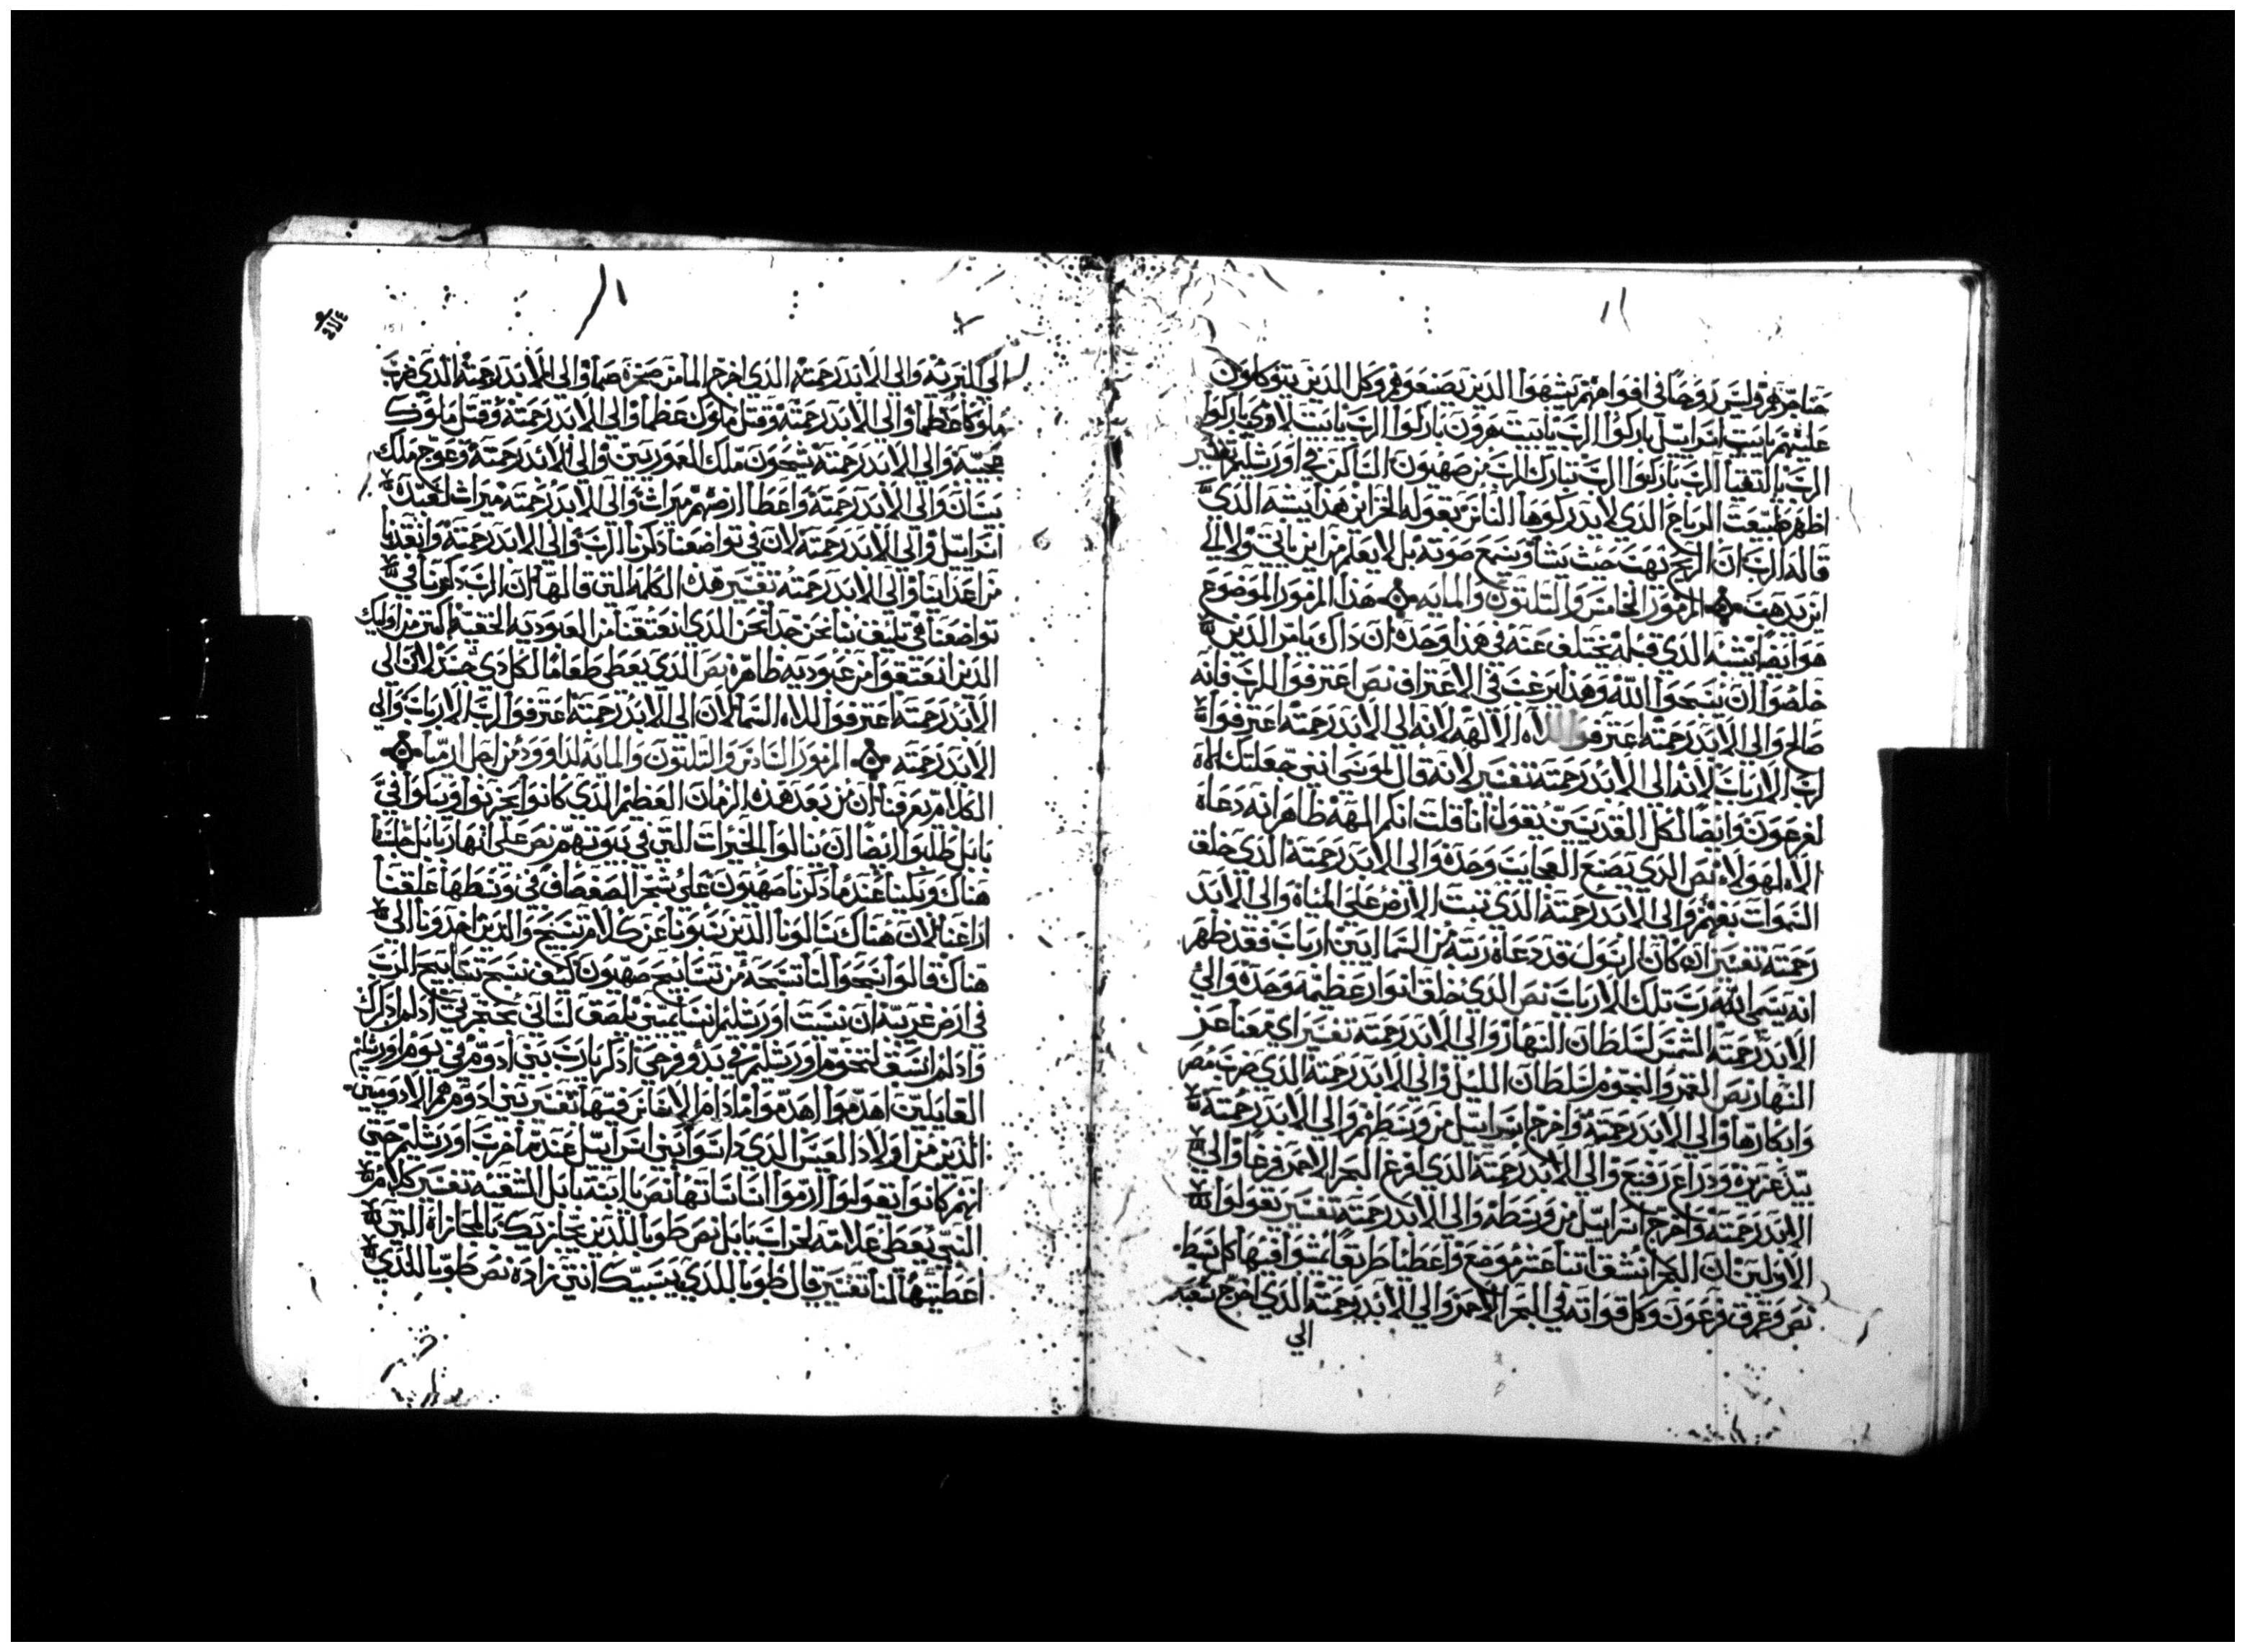 حناجرهم وليس روحا في افواههم يشبهوا الذين يصنعوهم وكل الذين يتوكلون
عليهم يا بيت اسراييل باركوا الرب يا بيت هرون باركوا الرب يا بيت لاوي باركوا
الرب يا اتقيا الرب باركوا الرب تبارك الرب من صهيون الساكن في اورشليم تفسير
اظهر طبيعت الرياح الذي لا يدركوها الناس بقوله الخزاين هذا يشبه الذي
قاله الرب ان الريح تهب حيث يشا وتسمع صوته بل لا يعلم من اين ياتي ولا الي
اين يذهب المزمور الخامس والتلتون والمايه هذا المزمور الموضوع
هو ايضا يشبه الذي قبله يختلف عنه في هذا وحده ان داك يامر الذين
خلصوا ان يسبحوا الله وهذا يرغب في الاعتراف نص اعترفوا للرب فانه
صالح والي الابد رحمته اعترفوا لالاه الالهه لانه الي الابد رحمته اعترفوا
لرب الارباب لانه الي الابد رحمته تفسير لانه قال لموسي انني جعلتك الاه
لفرعون وايضا لكل القديسين يقول انا قلت انكم الهه ظاهر انه دعاه
الاه لهولاه نص الذي يصنع العجايب وحده والي الابد رحمته الذي خلق
السموات بفهم والي الابد رحمته الذي تبت الارض علي المياه والي الابد
رحمته تفسير ان كان الرسول قد دعاه رتبه من السماايين ارباب فقد ظهر
انه يسمي الله رب تلك الارباب نص الذي خلق انوار عظيمه وحده والي
الابد رحمته الشمس لسلطان النهار والي الابد رحمته تفسير اي معنا عز
النهار نص القمر والنجوم لسلطان الليل والي الابد رحمته الذي ضرب مصر
وابكارها والي الابد رحمته واخرج اسراييل من وسطهم والي الابد رحمته
بيد عزيزه ودراع رفيع والي الابد رحمته الذي افرغ البحر الاحمر فرغا والي
الابد رحمته واخرج اسراييل من وسطه والي الابد رحمته تفسير يقولوا
الاولين ان البحر انشق اتنا عشر موضع واعطنا طريقا يمشوا فيها كل سبط
نص وغرق فرعون وكل قواته في البحر الاحمر والي الابد رحمته الذي اخرج شعبه
الي
الي البريه والي الابد رحمته الذي اخرج الما من صخره صما والي الابد رحمته الذي ضرب
ملوكا عظما والي الابد رحمته وقتل ملوك عظما والي الابد رحمته وقتل ملوك
عجيبه والي الابد رحمته سيحون ملك العموريين والي الابد رحمته وعوج ملك
بيسان والي الابد رحمته واعطا ارضهم ميراث والي الابد رحمته ميراث لعبده
اسراييل والي الابد رحمته لان في تواضعنا ذكرنا الرب والي الابد رحمته وانقذنا
من اعداينا والي الابد رحمته تفسير هذه الكلمه التي قالها ان الرب ذكرنا في
تواضعنا في تليق بنا نحن جدا نحن الذي انعتقنا من العبوديه الحقيه اكتر من اوليك
الذين انعتقوا من عبوديه ظاهره نص الذي يعطي طعاما لكل ذي جسد لان الي
الابد رحمته اعترفوا لالاه السما لان الي الابد رحمته اعترفوا لرب الارباب والي
الابد رحمته المزمور السادس والتلتون والمايه لداوود من اجل ارميا
الكلام يعرفنا ان من بعد هذه الزمان العظيم الذي كانوا يحزنوا ويبكوا في
بابل طلبوا ايضا ان ينالوا الخيرات التي في بيوتهم نص علي انهار بابل جلسنا
هناك وبكينا عند ما ذكرنا صهيون علي شجر الصفصاف في وسطها علقنا
اراغننا لان هناك سالونا الذين سبونا عن كلام تسبيح والذين اخدونا الي
هناك قالوا سبحوا لنا تسبحه من تسابيح صهيون كيف نسبح تسابيح الرب
في ارض غريبه ان نسيت اورشليم انسا يميني يلصق لساني بحنجرتي اد لم ادكرك
واد لم اسبق نجوم اورشليم في بدو فرحي اذكر يا رب بني ادوم في يوم اورشليم
القايلين اهدموا اهدموا ما دام الاساس فيها تفسير بني ادوم هم الادوميين
الذين من اولاد العيس الذي داسوا بني اسراييل عند ما خربت اورشليم حتي
انهم كانوا يقولوا ارموا اساساتها نص يا ابنة بابل الشقيه تفسير كلام
النبي يعطي علامه لخراب بابل نص طوبا للذين يجازيك بالمجازاه التي
اعطيتها لنا تفسير قال طوبا للذي يسبيك انتي زاده نص طوبا للذي